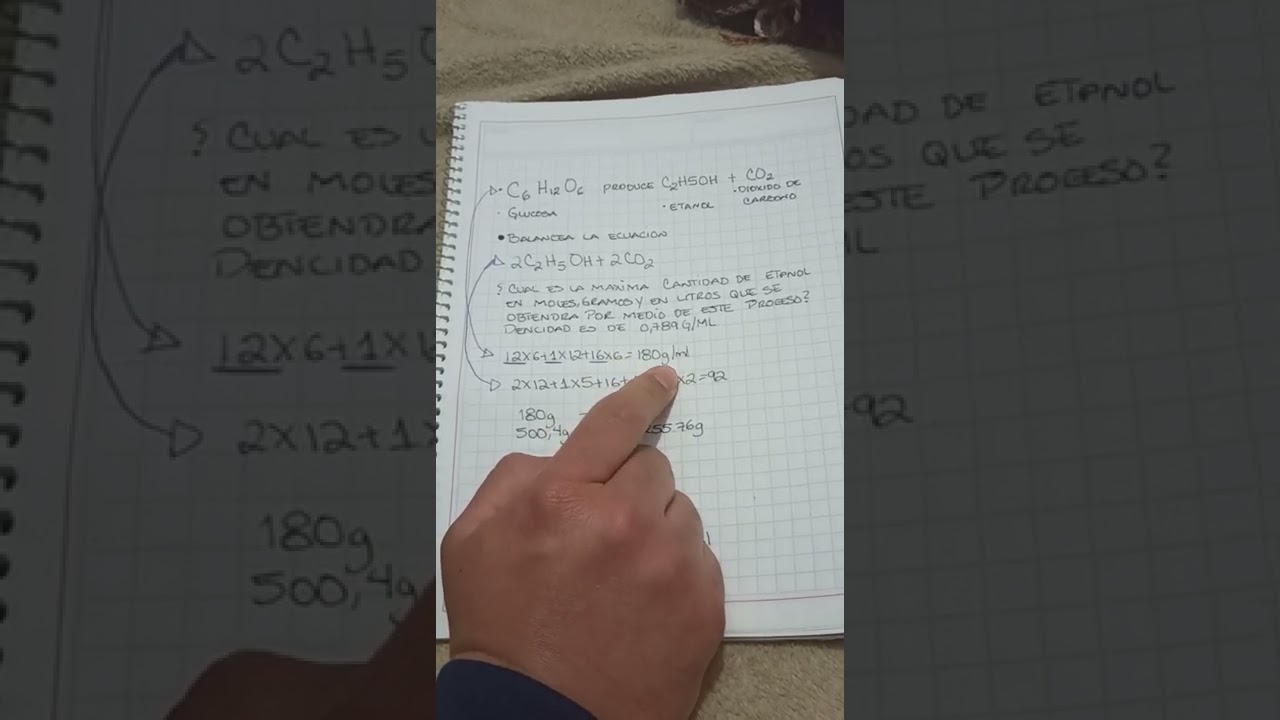 C6 H12 O6 PRODUCE C2H5OH + CO2
· GLUCOSA · ETANOL · DIOXIDO DE CARBONO
• BALANCEA LA ECUACION
2C2H5OH + 2CO2
¿ CUAL ES LA MAXIMA CANTIDAD DE ETANOL
EN MOLES, GRAMOS Y EN LITROS QUE SE
OBTENDRA POR MEDIO DE ESTE PROCESO?
DENCIDAD ES DE 0,789 G/ML
12X6+1X12+16X6=180g/ml
2X12+1X5+16+ X2=92
180g
500,4g 255.76g